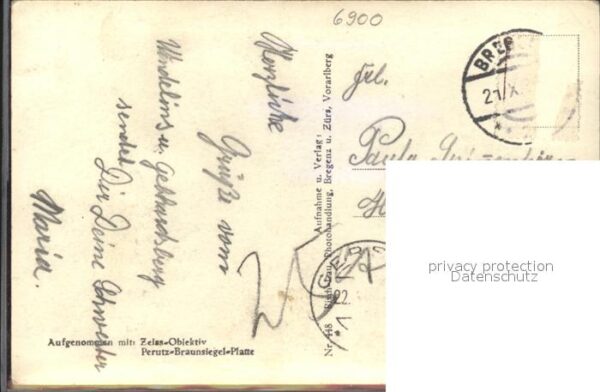 6900
Herzliche
Grüße vom
Wendelins u. Gebhardsberg
sendet
Dir Deine Schwester
Maria.
Aufgenommen mit: Zeiss-Objektiv
Perutz-Braunsiegel-Platte
Nr. 118 Photohandlung, Bregenz u. Zürs, Vorarlberg
Aufnahme u. Verlag:
Frl.
Paula
BREG
21.X
22.
privacy protection
Datenschutz